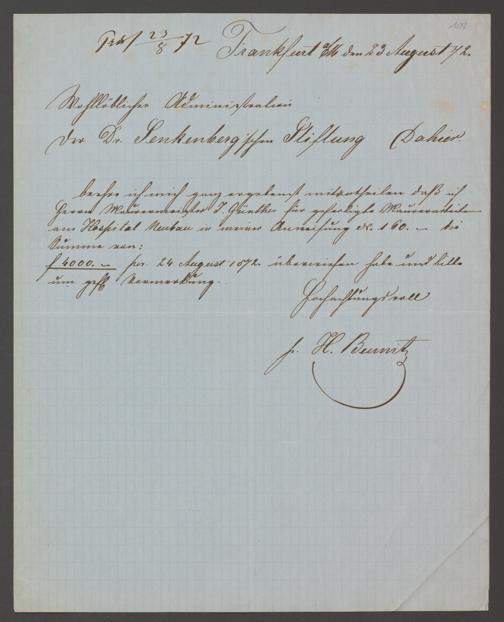 103
Präs 23/8 72
Frankfurt a/M den 23 August 72.
Wohllöblicher Administration
der Dr. Senkenberg'schen Stiftung Dahier.
beehre ich mich ganz ergebenst mitzutheilen daß ich
Herrn Maurermeister J. Günther für gefertigte Maurerarbeiten
am Hospital Neubau in meiner Anweisung No. 160. – die
Summe von:
f 4000. – per 24 August 1872. überwiesen habe und bitte
um gefl. Vormerkung.
Hochachtungsvoll
H. Burnitz